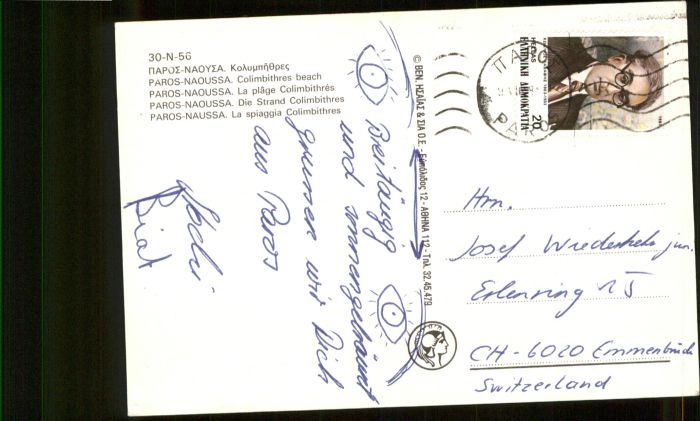 30-N-56
ΠΑΡΟΣ-ΝΑΟΥΣΑ. Κολυμπήθρες
PAROS-NAOUSSA. Colimbithres beach
PAROS-NAOUSSA. La plâge Colimbithrés
PAROS-NAOUSSA. Die Strand Colimbithres
PAROS-NAUSSA. La spiaggia Colimbithres
Breitäugig
und sonnengebräunt
grüssen wir Dich
aus Paros
Beat
© ΒΕΝ. ΗΣΑΪΑΣ & ΣΙΑ Ο.Ε. - Ευπόλιδος 12 - ΑΘΗΝΑ 112 - Τηλ. 32.45.479
HELLAS
ΕΛΛΗΝΙΚΗ ΔΗΜΟΚΡΑΤΙΑ
20
Hrn.
Josef Wiederkehr jun.
Erlenring 15
CH-6020 Emmenbrücke
Switzerland